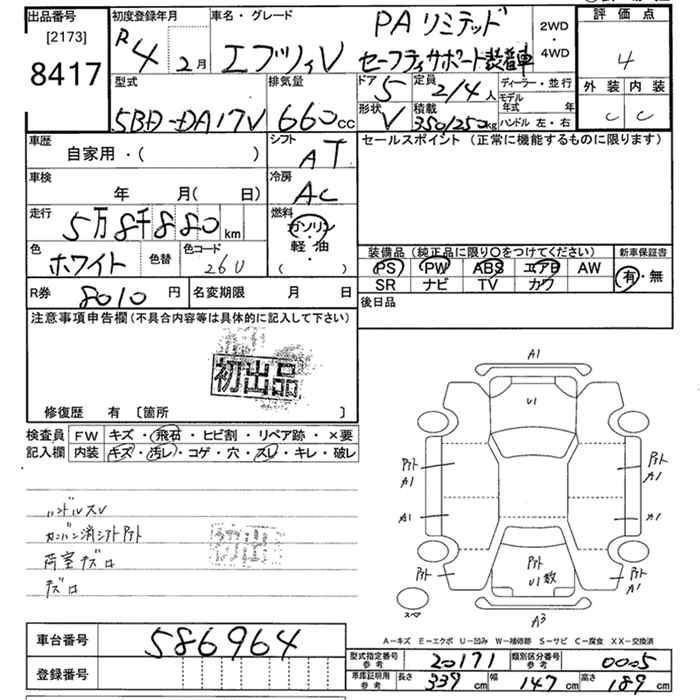 出品番号
[2173]
8417
初度登録年月
R4 2月
車名・グレード
エブリィV
PAリミテッド
セーフティサポート装着車
2WD
・
4WD
評価点
4
外装 内装
C C
型式
5BD-DA17V
排気量
660cc
ドア 5
定員 2/4人
形状 V
積載 350/250kg
ディーラー・並行
モデル年式 年
ハンドル 左・右
車歴
自家用・( )
シフト
AT
セールスポイント(正常に機能するものに限ります)
車検
年 月( 日)
冷房
AC
走行
5万8千880km
燃料
ガソリン
・
軽・油
( )
色
ホワイト
色替
色コード
26U
装備品(純正品に限り〇をつけてください)
PS PW ABS エアB AW
SR ナビ TV カワ
新車保証書
有・無
R券 8010円
名変期限 月 日
後日品
注意事項申告欄(不具合内容等は具体的に記入して下さい)
初出品
修復歴 有 [箇所 ]
検査員
記入欄
FW キズ・飛石・ヒビ割・リペア跡・×要
内装 キズ・汚レ・コゲ・穴・スレ・キレ・破レ
ハンドルスレ
荷室キズロ
キズロ
初出
A1
U1
A1
A1
A1
A1
U1数
A1
A3
スペア
A-キズ E-エクボ U-凹み W-補修跡 S-サビ C-腐食 XX-交換済
車台番号 586964
登録番号
型式指定番号
参考
20171
類別区分番号
参考
0005
車庫証明用
参考
長さ 339cm
幅 147cm
高さ 189cm